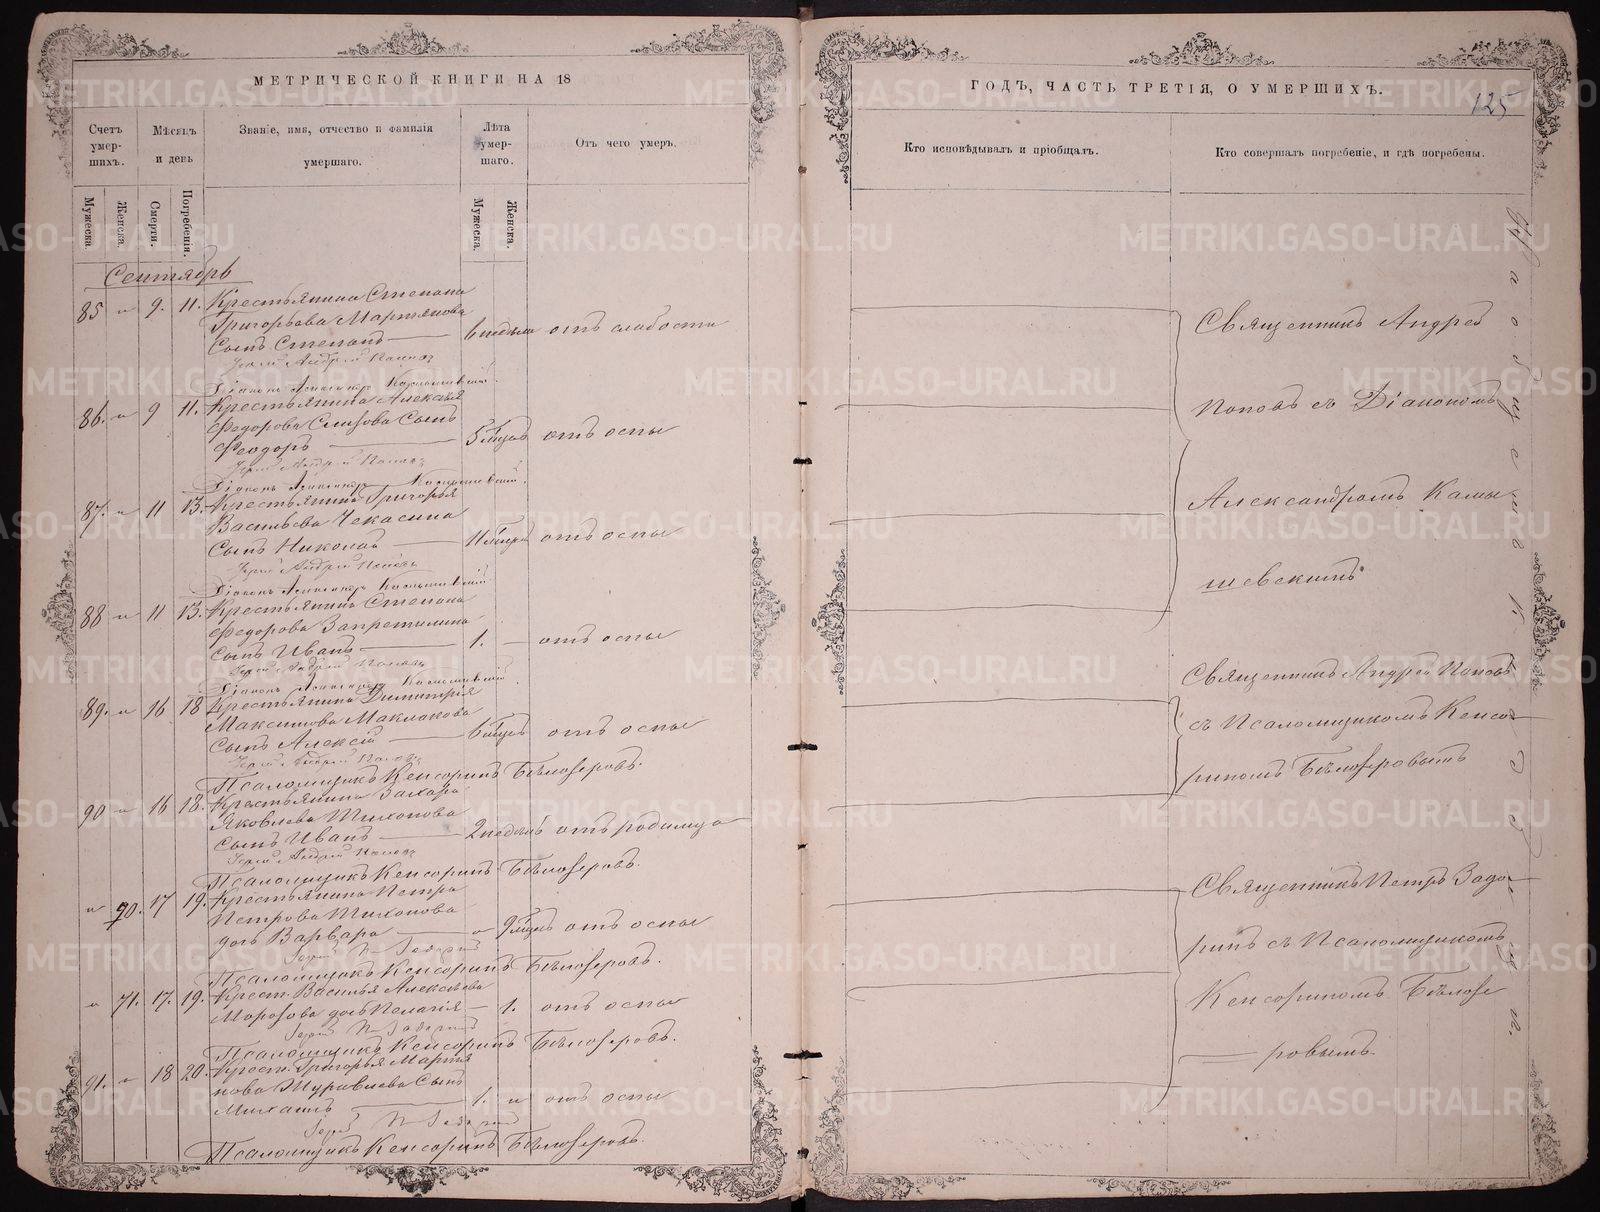 МЕТРИЧЕСКОЙ КНИГИ НА 18
Счетъ умер-шихъ.
Мѣсяцъ и день
Званіе, имя, отчество и фамилія умершаго.
Лѣта умер-шаго.
Отъ чего умеръ.
Мужеска.
Женска.
Смерти.
Погребенія.
Мужеска.
Женска.
Сентябрь
85 " 9. 11. Крестьянина Степана
Григорьева Мартьянова
Сынъ Степанъ 6 недѣль отъ слабости
Іерей Андрей Поповъ
Діаконъ Александръ Камышевскій.
86. " 9 11. Крестьянина Алексѣя
Федорова Сынъ
Феодоръ 5 мцъ отъ оспы
Іерей Андрей Поповъ
Діаконъ Александръ Камышевскій.
87. " 11 13. Крестьянина Григорья
Васильева Чекасина
Сынъ Николай отъ оспы
Іерей Андрей Поповъ
Діаконъ Александръ Камышевскій
88 " 11 13. Крестьянина Степана
Федорова Запретилина
сынъ Иванъ 1. отъ оспы
Іерей Андрей Поповъ
Діаконъ Александръ Камышевскій.
89. " 16 18 Крестьянина Димитрія
Максимова Маклакова
Сынъ Алексій 6 мцъ отъ оспы
Іерей Андрей Поповъ
Псаломщикъ Кенсоринъ Бѣлозеровъ.
90 " 16 18. Крестьянина Захара
Яковлева Тихонова
Сынъ Иванъ 2 недѣль отъ родимца
Іерей Андрей Поповъ
Псаломщикъ Кенсоринъ Бѣлозеровъ.
" 70. 17 19. Крестьянина Петра
Петрова Тихонова
дочь Варвара " 9 мцъ отъ оспы
Іерей П Задоринъ
Псаломщикъ Кенсоринъ Бѣлозеровъ.
" 71. 17. 19. Крест. Василья Алексѣева
Морозова дочь Пелагія 1. отъ оспы
Іерей П Задоринъ
Псаломщикъ Кенсоринъ Бѣлозеровъ.
91. " 18 20. Крест. Григорья Марты
нова Журавлева Сынъ
Михаилъ 1. " отъ оспы
Іерей П Задоринъ
Псаломщикъ Кенсоринъ Бѣлозеровъ.
ГОДЪ, ЧАСТЬ ТРЕТІЯ, О УМЕРШИХЪ.
125
Кто исповѣдывалъ и пріобщалъ.
Кто совершалъ погребеніе, и гдѣ погребены.
Священникъ Андрей
Поповъ съ Діакономъ
Александромъ Камы
шевскимъ
Священникъ Андрей Поповъ
съ Псаломщикомъ Кенсо
риномъ Бѣлозеровымъ
Священникъ Петръ Задо
ринъ съ Псаломщикомъ
Кенсориномъ Бѣлозе
ровымъ.
METRIKI.GASO-URAL.RU